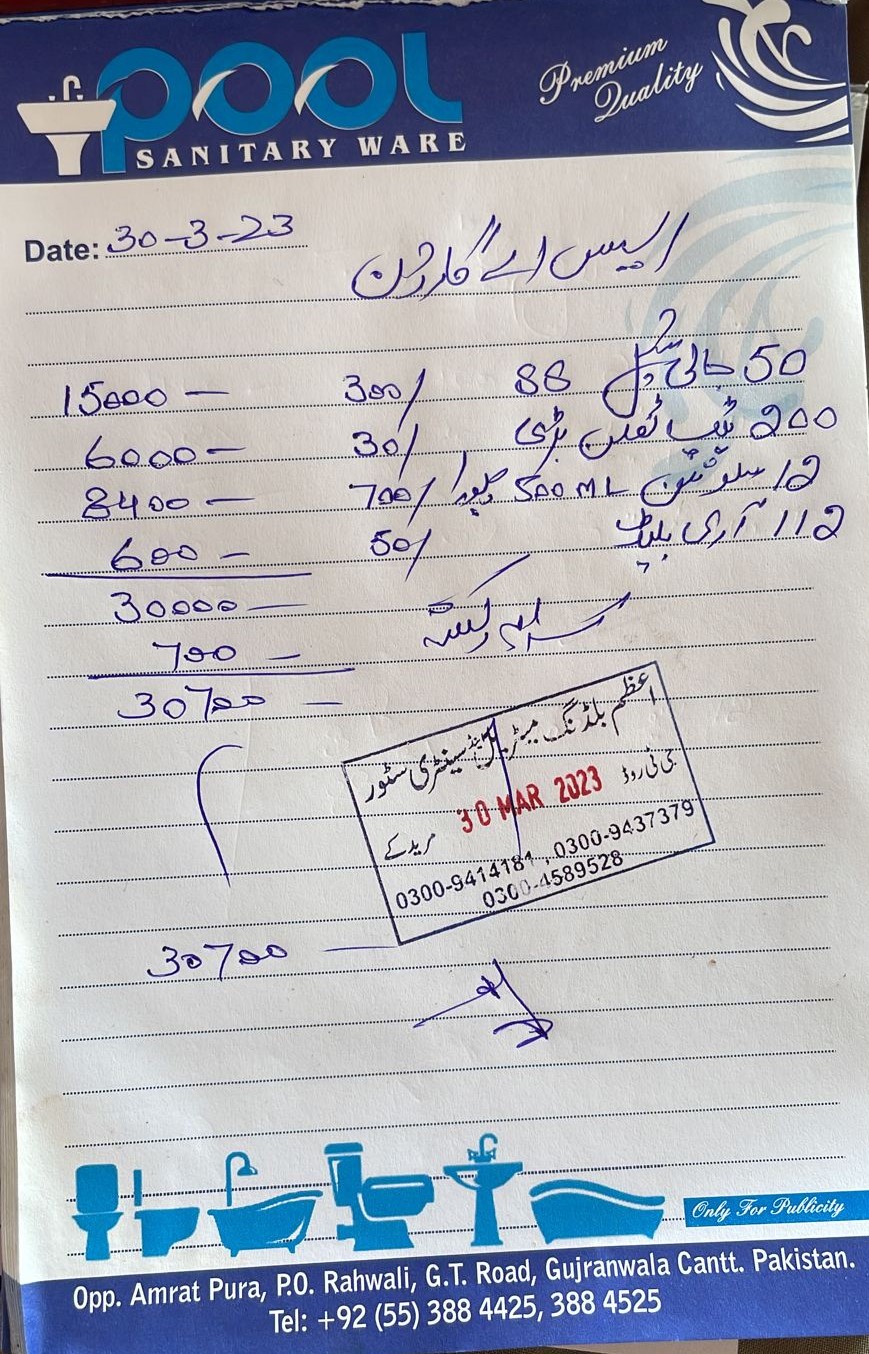 POOL
SANITARY WARE
Premium
Quality
Date: 30-3-23
ایس اے گارڈن
50 جالی 88 300/ 15000 —
200 ٹیپ ٹفلن بڑی 30/ 6000 —
12 سلوشن 500 ML 700/ 8400 —
112 آری بلیڈ 50/ 600 —
30000 —
700 —
30700 —
اعظم بلڈنگ میٹریل اینڈ سینٹری سٹور
جی ٹی روڈ 30 MAR 2023 مریدکے
0300-9414181 , 0300-9437379
0300-4589528
30700 —
Only For Publicity
Opp. Amrat Pura, P.O. Rahwali, G.T. Road, Gujranwala Cantt. Pakistan.
Tel: +92 (55) 388 4425, 388 4525